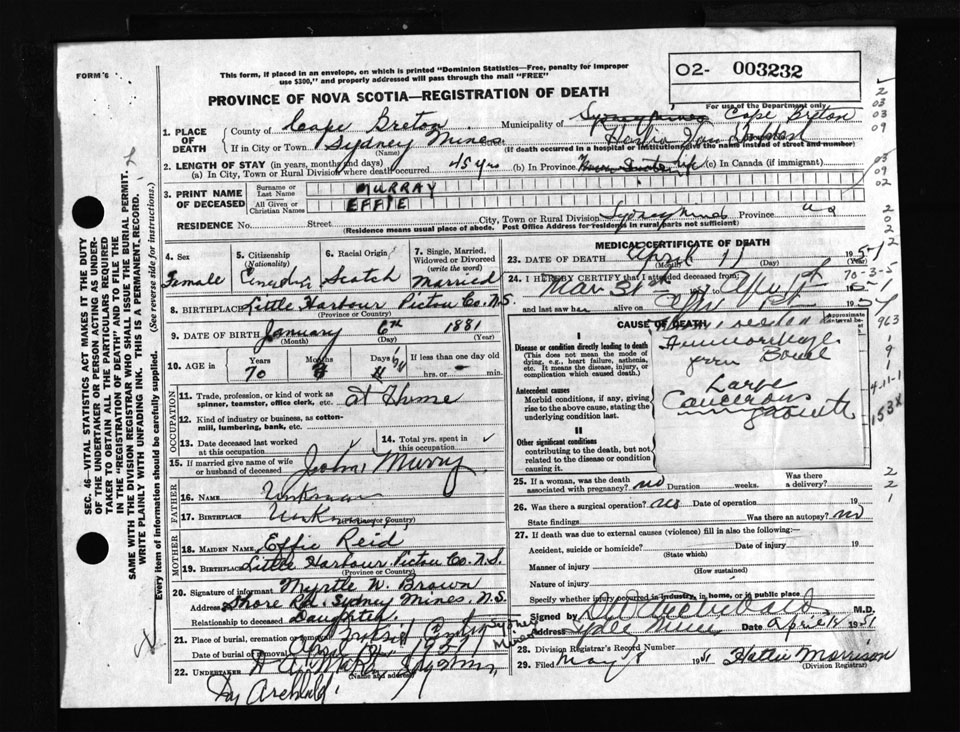 FORM "6
This form, if placed in an envelope, on which is printed "Dominion Statistics—Free, penalty for improper
use $300," and properly addressed will pass through the mail "FREE"
O2- 003232
PROVINCE OF NOVA SCOTIA—REGISTRATION OF DEATH
For use of the Department only
1. PLACE OF DEATH
County of Cape Breton Municipality of Sydney Mines Cape Breton
If in City or Town Sydney Mines
(Name) (If death occurred in a hospital or institution, give the name instead of street and number)
2. LENGTH OF STAY (in years, months and days)
(a) In City, Town or Rural Division where death occurred 45 yrs (b) In Province life (c) In Canada (if immigrant)
3. PRINT NAME OF DECEASED
Surname or Last Name MURRAY
All Given or Christian Names EFFIE
RESIDENCE No. Street City, Town or Rural Division Sydney Mines Province N S
(Residence means usual place of abode. Post Office Address for residents in rural parts not sufficient)
4. Sex
Female
5. Citizenship
(Nationality)
Canadian
6. Racial Origin
Scotch
7. Single, Married, Widowed or Divorced
(write the word)
Married
8. BIRTHPLACE Little Harbour Pictou Co. N.S.
(Province or Country)
9. DATE OF BIRTH January 6th 1881
(Month) (Day) (Year)
10. AGE in Years Months Days If less than one day
70 hrs. or min.
OCCUPATION
11. Trade, profession, or kind of work as
spinner, teamster, office clerk, etc. At Home
12. Kind of industry or business, as cotton-
mill, lumbering, bank, etc.
13. Date deceased last worked
at this occupation
14. Total yrs. spent in
this occupation
15. If married give name of wife
or husband of deceased John Murry
FATHER
16. NAME Unknown
17. BIRTHPLACE Unknown
(Province or Country)
MOTHER
18. MAIDEN NAME Effie Reid
19. BIRTHPLACE Little Harbour Pictou Co. N.S.
(Province or Country)
20. Signature of informant Myrtle W. Brown
Address Shore Rd. Sydney Mines, N.S.
Relationship to deceased Daughter
21. Place of burial, cremation or removal Cemetery Sydney Mines
Date of burial or removal April 12 1951
22. UNDERTAKER
(Name and address)
MEDICAL CERTIFICATE OF DEATH
23. DATE OF DEATH April 11 1951
(Month) (Day)
24. I HEREBY CERTIFY that I attended deceased from:
Mar 31st
and last saw her alive on
CAUSE OF DEATH
Approximate
I
Disease or condition directly leading to death
(This does not mean the mode of
dying, e.g., heart failure, asthenia,
etc. It means the disease, injury, or
complication which caused death.)
Haemorrhage
from Bowel
Antecedent causes
Morbid conditions, if any, giving
rise to the above cause, stating the
underlying condition last.
Large
Cancerous
growth
II
Other significant conditions
contributing to the death, but not
related to the disease or condition
causing it.
25. If a woman, was the death
associated with pregnancy? no Duration weeks. Was there
a delivery?
26. Was there a surgical operation? Date of operation 19
State findings Was there an autopsy? no
27. If death was due to external causes (violence) fill in also the following:
Accident, suicide or homicide? Date of injury 19
(State which)
Manner of injury
(How sustained)
Nature of injury
Specify whether injury occurred in industry, in home, or in public place
Signed by M.D.
Address Date April 18 1951
28. Division Registrar's Record Number
29. Filed May 8 1951 Hattie Morrison
(Division Registrar)
SEC. 46—VITAL STATISTICS ACT MAKES IT THE DUTY
OF THE UNDERTAKER OR PERSON ACTING AS UNDER-
TAKER TO OBTAIN ALL THE PARTICULARS REQUIRED
IN THE "REGISTRATION OF DEATH" AND TO FILE THE
SAME WITH THE DIVISION REGISTRAR WHO SHALL ISSUE THE BURIAL PERMIT.
WRITE PLAINLY WITH UNFADING INK. THIS IS A PERMANENT RECORD.
Every item of information should be carefully supplied. (See reverse side for instructions.)
2
03
03
09
03
09
02
2
0
2
2
70-3-5
963
1
9
1
4-11-1
153X
2
2
1